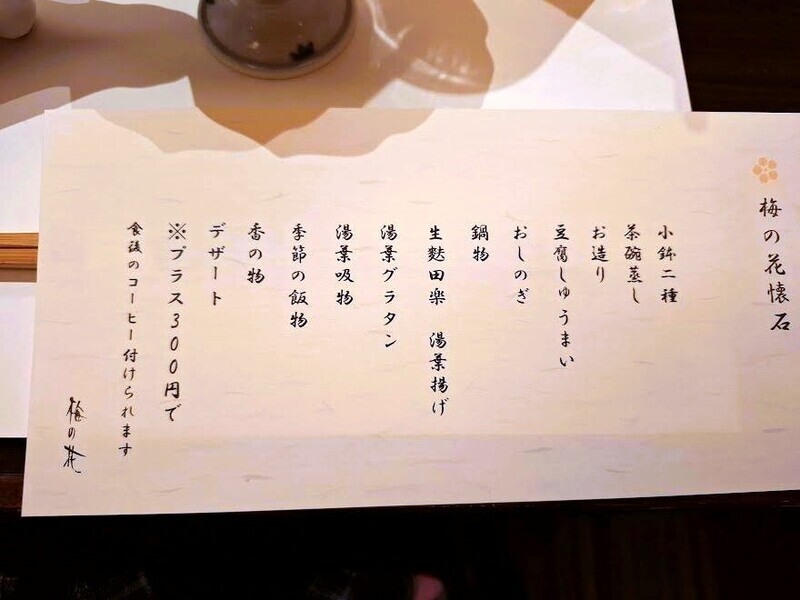 梅の花懐石
小鉢二種
茶碗蒸し
お造り
豆腐しゅうまい
おしのぎ
鍋物
生麩田楽　湯葉揚げ
湯葉グラタン
湯葉吸物
季節の飯物
香の物
デザート
※プラス300円で
食後のコーヒー付けられます
梅の花